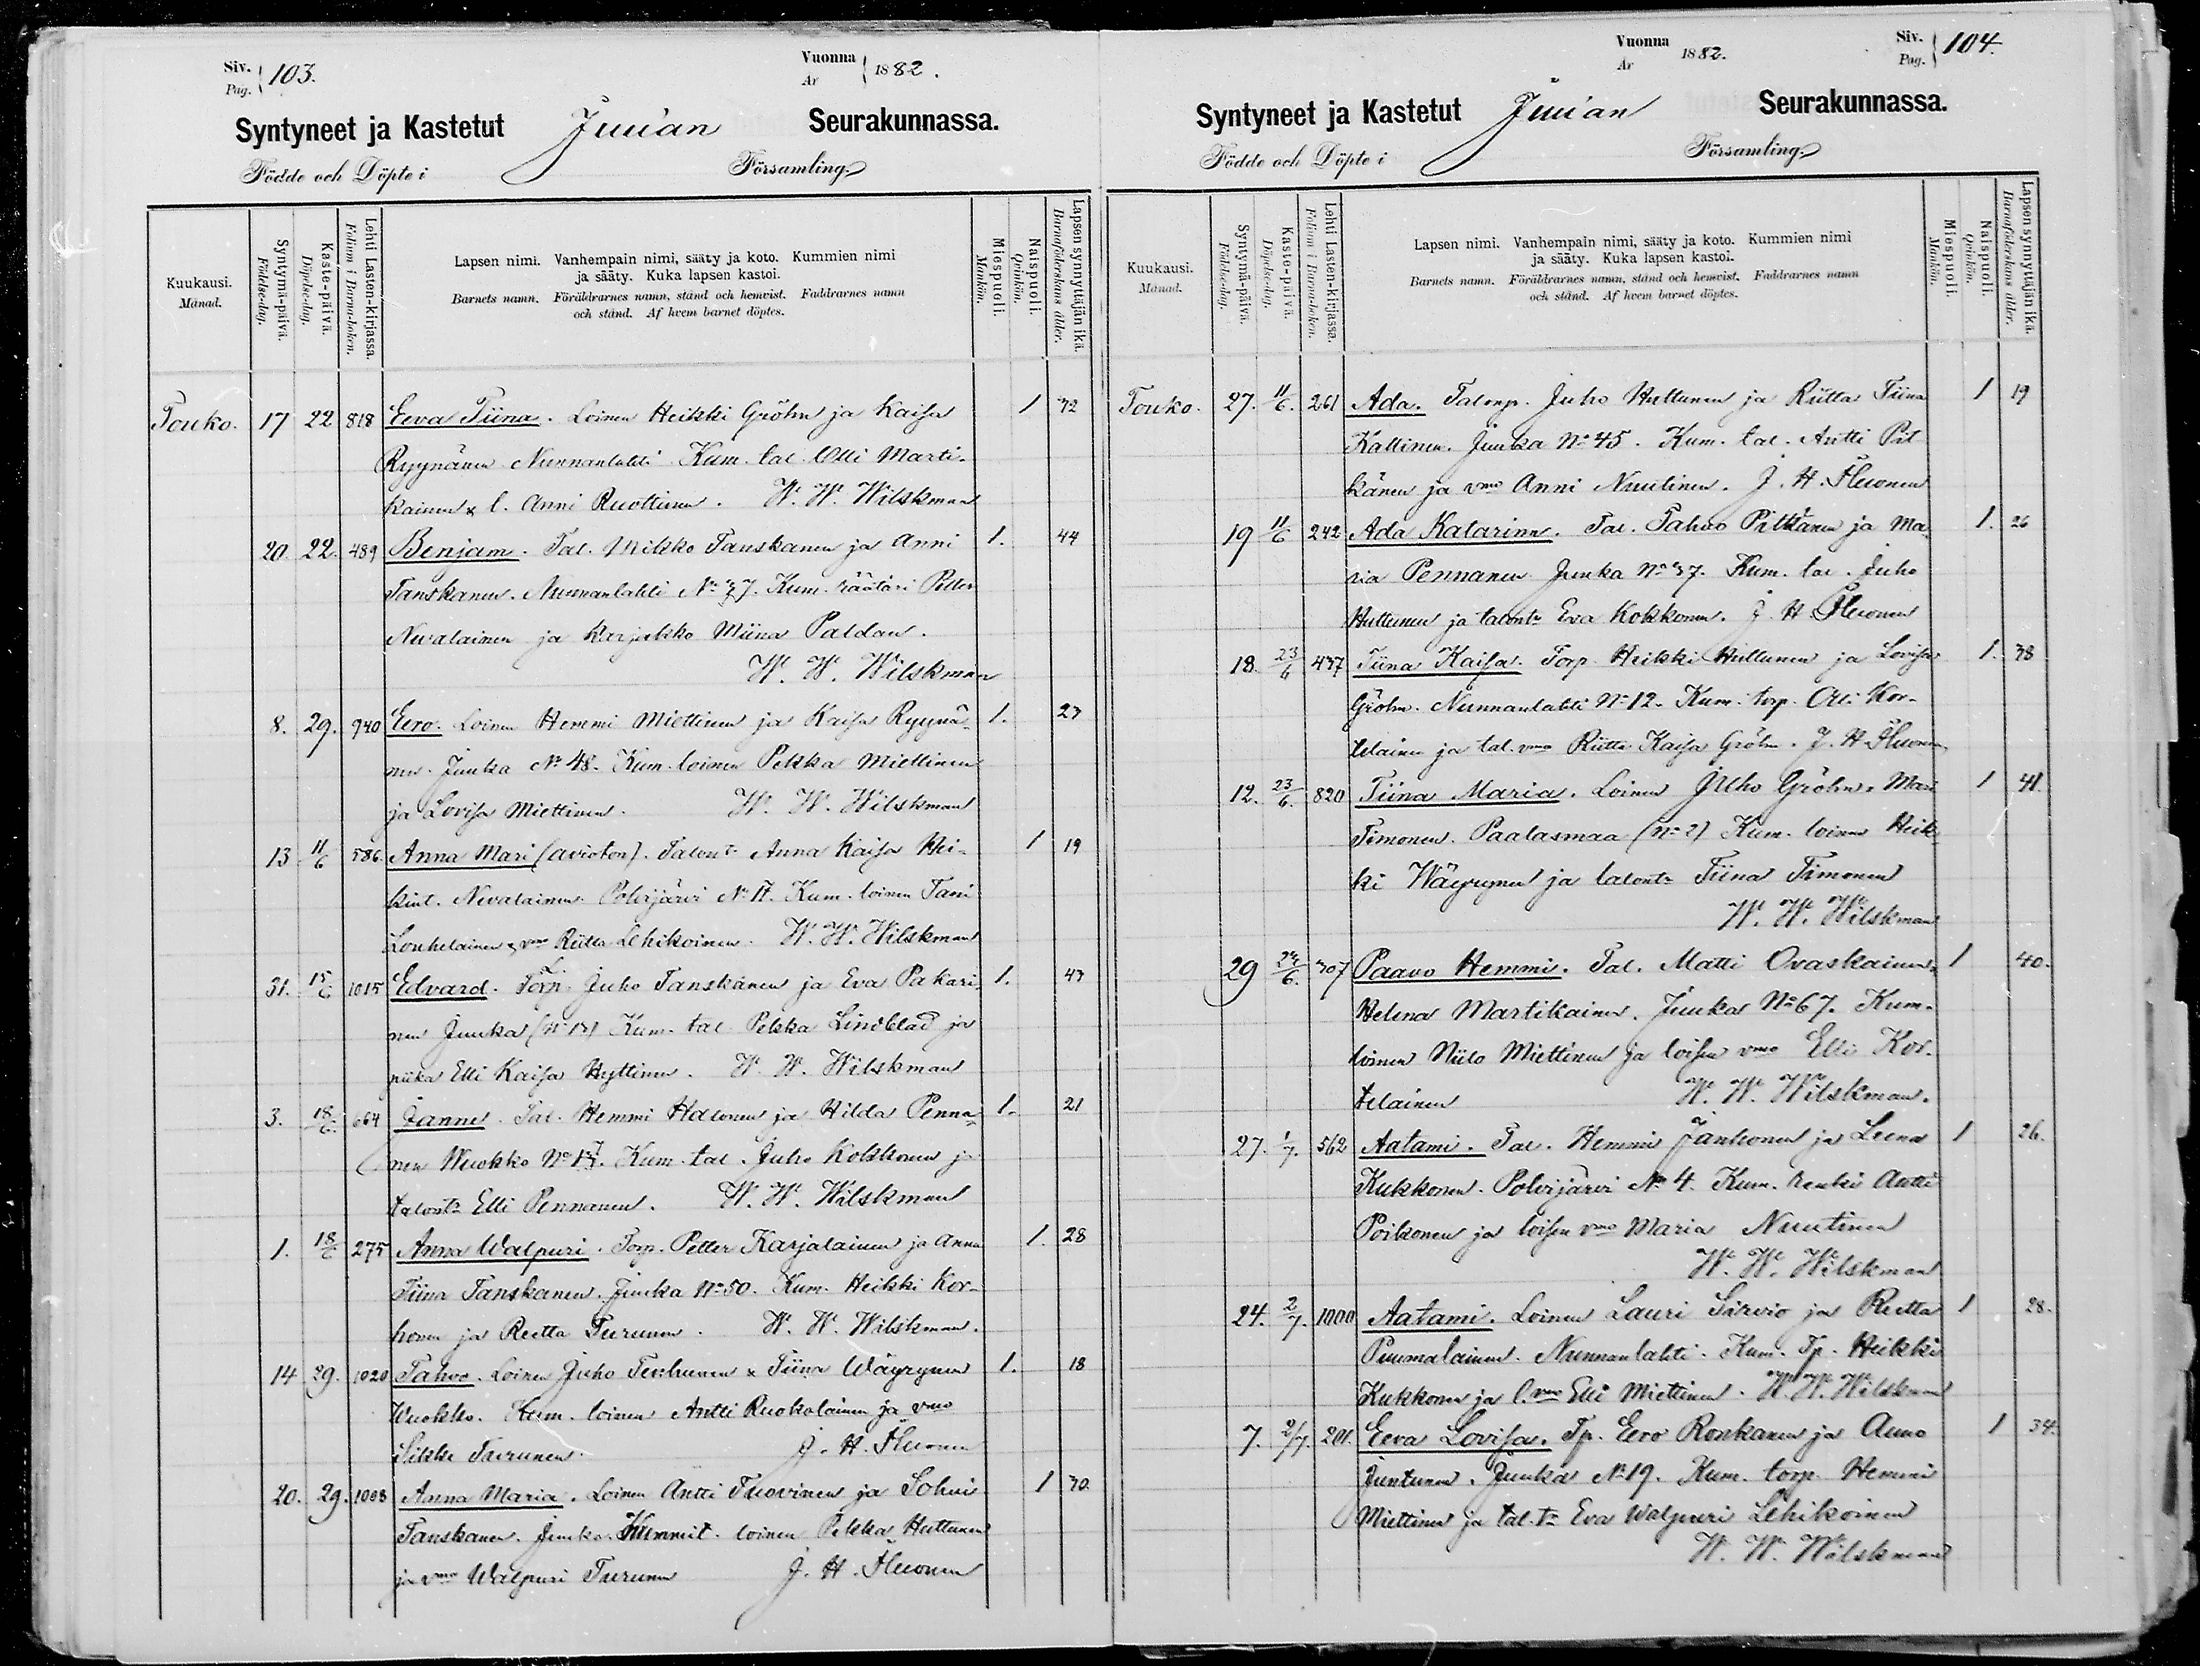 Siv. Pag. 103.
Vuonna År 1882.
Syntyneet ja Kastetut Juuan Seurakunnassa.
Födde och Döpte i Församling.
Kuukausi. Månad.
Syntymä-päivä. Födelse-dag.
Kaste-päivä. Döpelse-dag.
Lehti Lasten-kirjassa. Folium i Barna-boken.
Lapsen nimi. Vanhempain nimi, sääty ja koto. Kummien nimi
ja sääty. Kuka lapsen kastoi.
Barnets namn. Föräldrarnes namn, stånd och hemvist. Faddrarnes namn
och stånd. Af hvem barnet döptes.
Miespuoli. Mankön.
Naispuoli. Qvinkön.
Lapsen synnyttäjän ikä. Barnaföderskans ålder.
Touko. 17 22 818 Eeva Tiina. Loinen Heikki Gröhn ja Kaisa 1 32
Ryynänen Nunnanlahti Kum. tal. Olli Marti-
kainen & l. Anni Ruottinen. W. W. Wilskman
20. 22. 489 Benjam. Tal. Mikko Tanskanen ja Anni 1. 44
Tanskanen. Nunnanlahti No 37. Kum. räätäri Petter
Nevalainen ja Karjakko Miina Paldan.
W. W. Wilskman
8. 29. 940 Eero. Loinen Hemmi Miettinen ja Kaisa Ryynä- 1. 23
nen. Juuka No 48. Kum. loinen Pekka Miettinen
ja Lovisa Miettinen. W. W. Wilskman
13 11/6 586. Anna Mari (avioton). Talont. Anna Kaisa Hei- 1 19
kint. Nevalainen. Polvijärvi No 17. Kum. loinen Tani
Louhelainen & vmo Riitta Lehikoinen. W. W. Wilskman
31. 15/6 1015 Edvard. Torp. Juho Tanskanen ja Eva Pakari- 1. 43
nen Juuka (No 13) Kum. tal. Pekka Lindblad ja
piika Elli Kaisa Hyttinen. W. W. Wilskman
3. 18/6. 664 Janne. Tal. Hemmi Halonen ja Hilda Penna- 1. 21
nen Wuokko No 13. Kum. tal. Juho Kokkonen ja
talont. Elli Pennanen. W. W. Wilskman
1. 18/6 275 Anna Walpuri. Torp. Petter Karjalainen ja Anna 1. 28
Tiina Tanskanen. Juuka No 50. Kum. Heikki Kor-
honen ja Reetta Turunen. W. W. Wilskman.
14 29. 1020 Tahvo. Loinen Juho Terhunen & Tiina Wäyrynen 1. 18
Wuokko. Kum. loinen Antti Ruokolainen ja vmo
Sikke Turunen. J. H. Fluonen
20. 29. 1008 Anna Maria. Loinen Antti Tuovinen ja Sohvi 1 30.
Tanskanen. Juuka. Kummit. loinen Pekka Huttunen
ja vmo Walpuri Turunen J. H. Fluonen
Vuonna År 1882.
Siv. Pag. 104.
Syntyneet ja Kastetut Juuan Seurakunnassa.
Födde och Döpte i Församling.
Kuukausi. Månad.
Syntymä-päivä. Födelse-dag.
Kaste-päivä. Döpelse-dag.
Lehti Lasten-kirjassa. Folium i Barna-boken.
Lapsen nimi. Vanhempain nimi, sääty ja koto. Kummien nimi
ja sääty. Kuka lapsen kastoi.
Barnets namn. Föräldrarnes namn, stånd och hemvist. Faddrarnes namn
och stånd. Af hvem barnet döptes.
Miespuoli. Mankön.
Naispuoli. Qvinkön.
Lapsen synnyttäjän ikä. Barnaföderskans ålder.
Touko. 27. 11/6. 261 Ada. Talonp. Juho Huttunen ja Riitta Tiina 1 19
Kallinen. Juuka No 45. Kum. tal. Antti Pit
känen ja vmo Anni Nuutinen. J. H. Fluonen
19 11/6 242 Ada Katarina. Tal. Tahvo Pitkänen ja Ma- 1. 26
ria Pennanen Juuka No 37. Kum. tal. Juho
Huttunen ja talont. Eva Kokkonen. J. H. Fluonen
18. 23/6 437 Tiina Kaisa. Torp. Heikki Huttunen ja Lovisa 1. 38
Gröhn. Nunnanlahti No 12. Kum. torp. Olli Kor-
telainen ja tal. vmo Riitta Kaisa Gröhn. J. H. Fluonen
12. 23/6. 820 Tiina Maria. Loinen Juho Gröhn & Mari 1 41.
Timonen. Paalasmaa (No 2) Kum. loinen Heik-
ki Wäyrynen ja talont. Tiina Timonen
W. W. Wilskman
29 24/6. 307 Paavo Hemmi. Tal. Matti Ovaskainen & 1 40.
Helena Martikainen. Juuka No 67. Kum.
loinen Niilo Miettinen ja loisen vmo Elli Kor-
telainen W. W. Wilskman.
27. 1/7. 562 Aatami. Tal. Hemmi Jänhonen ja Leena 1 26.
Kukkonen. Polvijärvi No 4. Kum. renki Antti
Poikonen ja loisen vmo Maria Nuutinen
W. W. Wilskman
24. 2/7. 1000 Aatami. Loinen Lauri Sirvio ja Reetta 1 28.
Puumalainen. Nunnanlahti. Kum. Tp. Heikki
Kukkonen ja l. vmo Elli Miettinen. W. W. Wilskman
7. 2/7. 201. Eeva Lovisa. Tp. Eero Ronkanen ja Anna 1 34.
Juntunen. Juuka No 19. Kum. torp. Hemmi
Miettinen ja tal. t. Eva Walpuri Lehikoinen
W. W. Wilskman